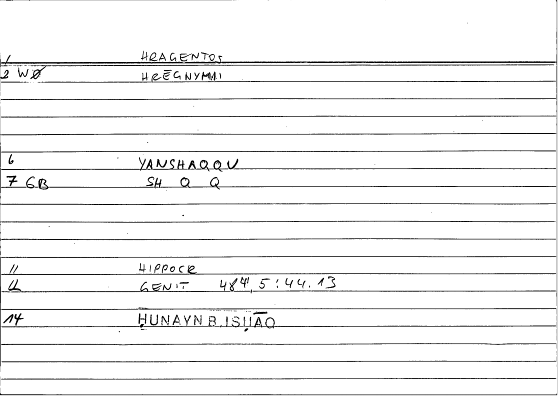 1 HRAGENTOS
2 WØ HRĒGNYMAI
6 YANSHAQQU
7 GB SH Q Q
11 HIPPOCR
12 GENIT 484,5:44.13
14 ḤUNAYN B. ISḤĀQ